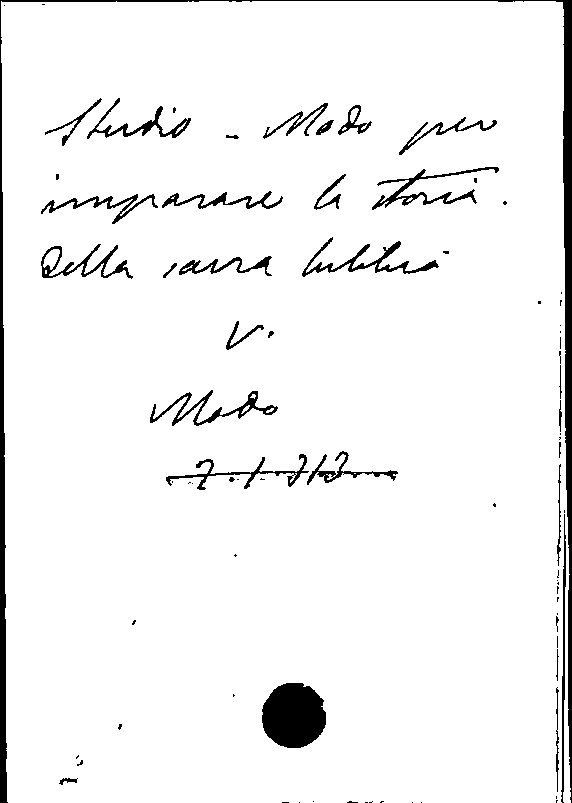 Studio - Modo per
imparare la storia.
Della sacra bibbia
V.
Modo
7.1.313